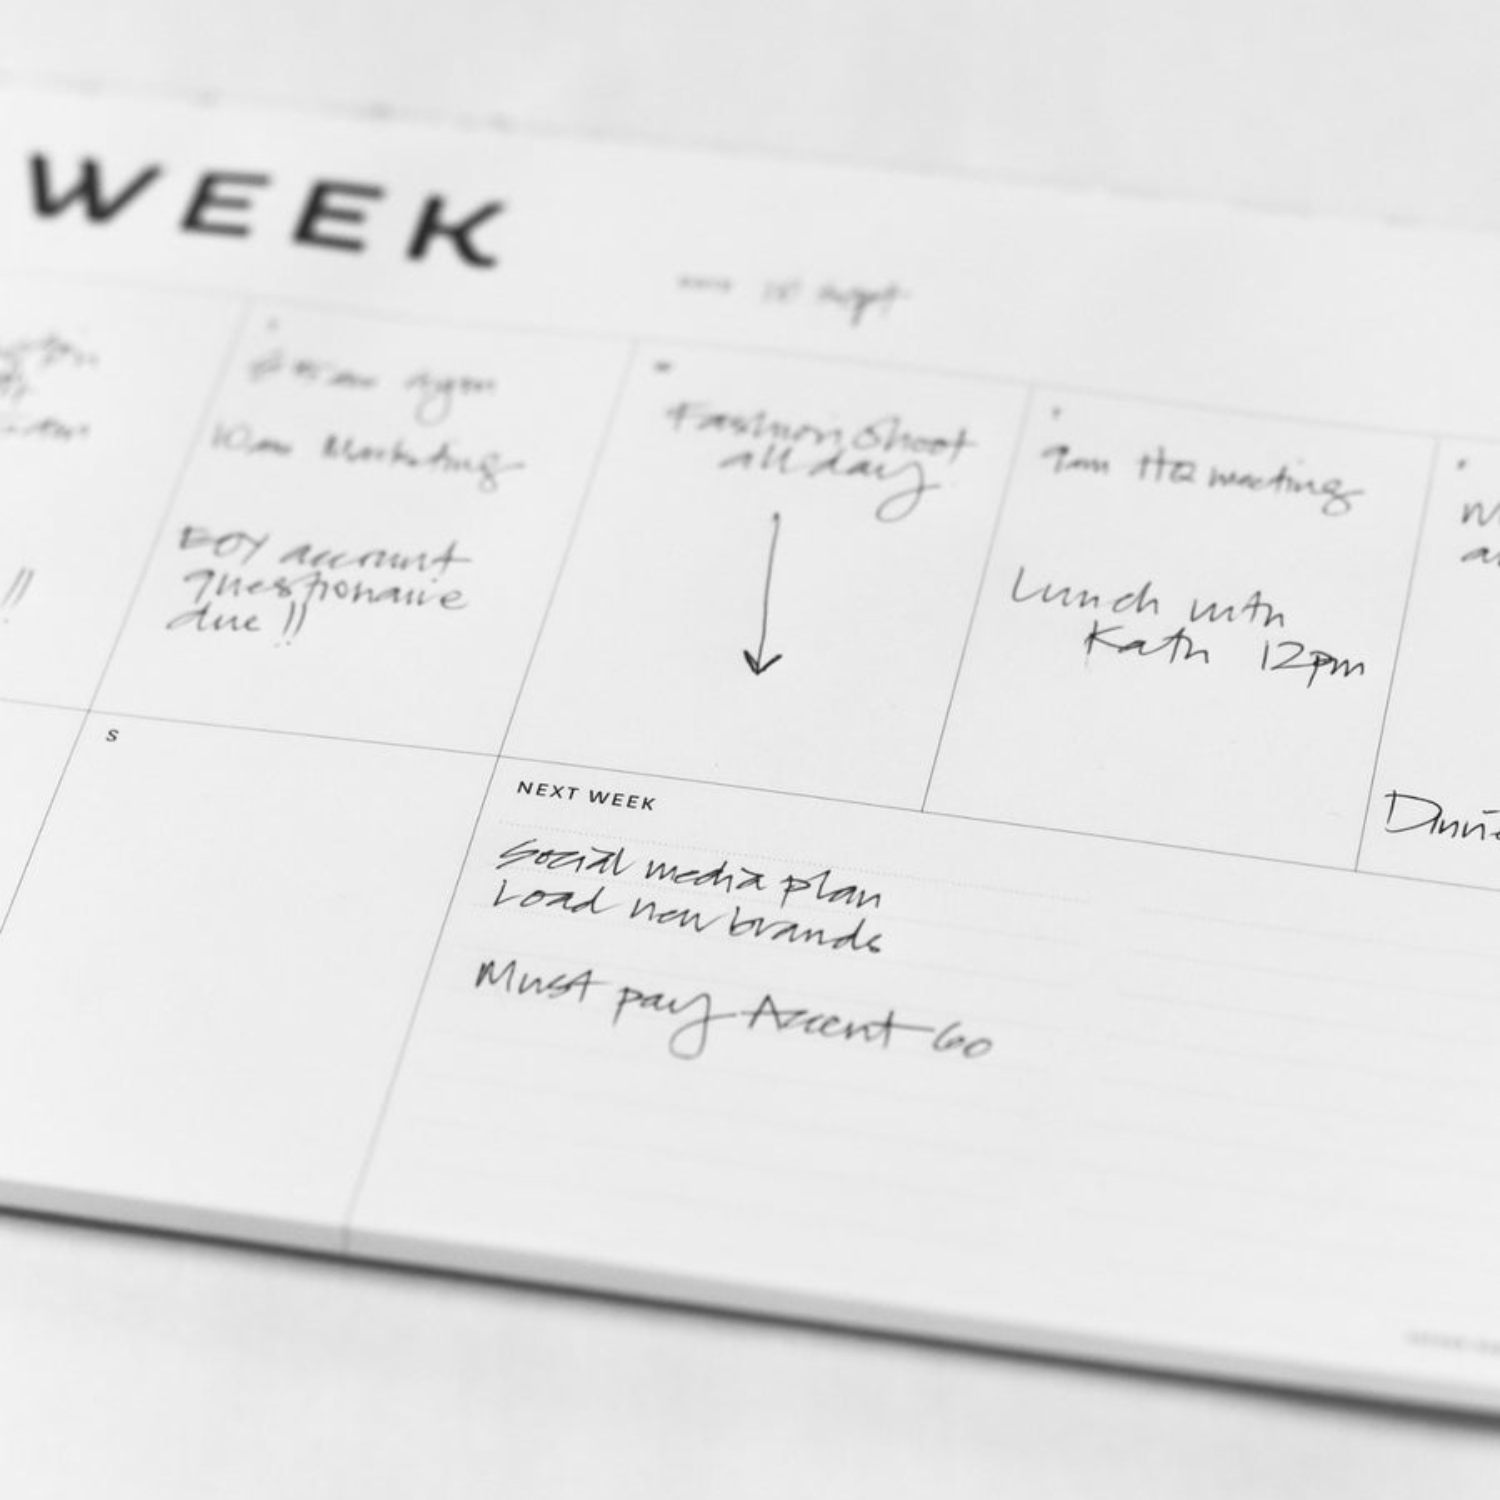 WEEK
Sept
gym
10am Marketing
EOY account
questionaire
due !!
Fashion Shoot
all day
9am HQ meeting
Lunch with
Kath 12pm
!!
S
NEXT WEEK
Social media plan
Load new brands
Must pay Accent Go